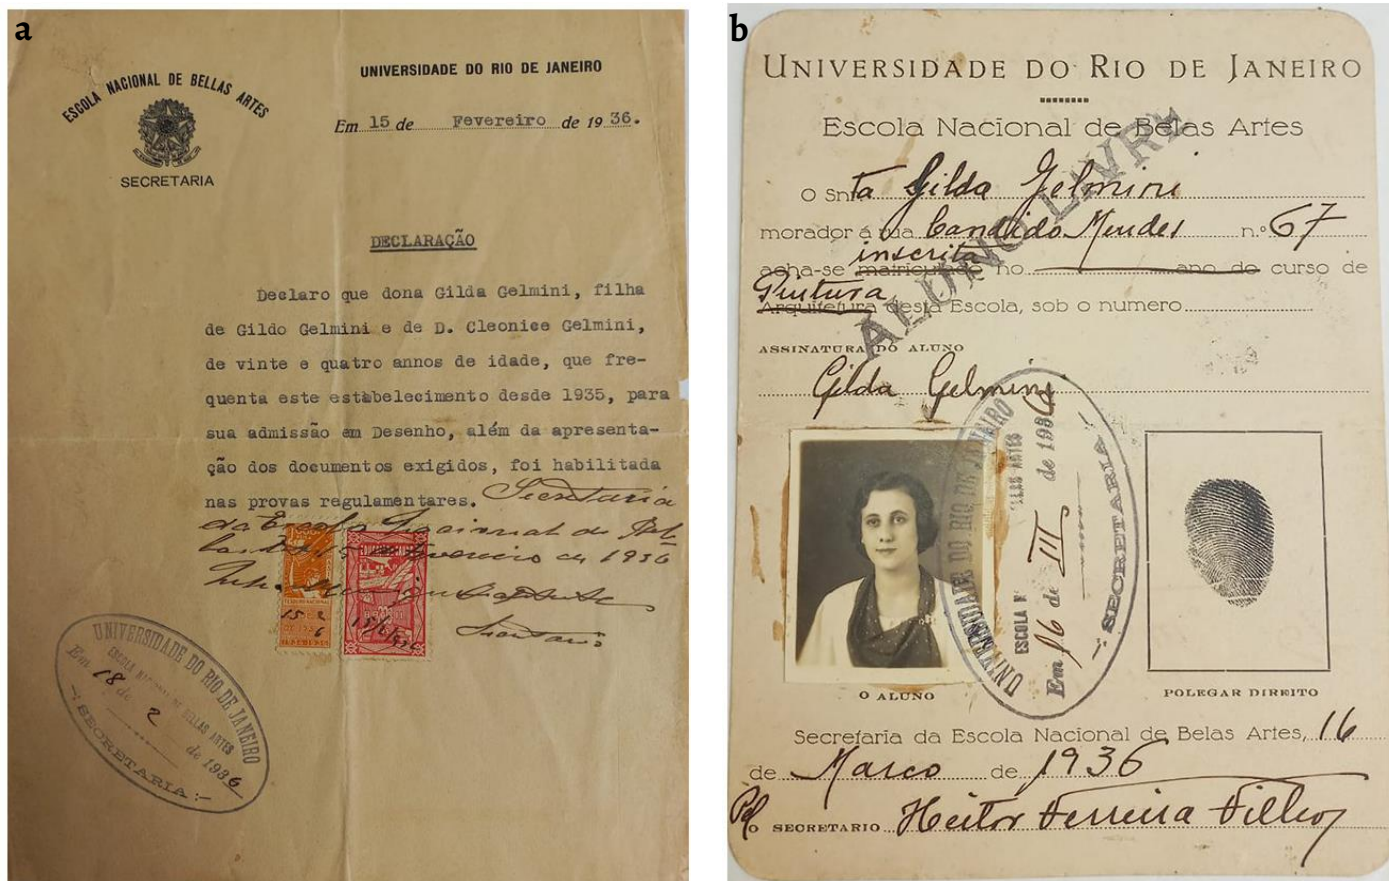 a
ESCOLA NACIONAL DE BELLAS ARTES
SECRETARIA
UNIVERSIDADE DO RIO DE JANEIRO
Em 15 de Fevereiro de 1936.
DECLARAÇÃO
Declaro que dona Gilda Gelmini, filha
de Gildo Gelmini e de D. Cleonice Gelmini,
de vinte e quatro annos de idade, que fre-
quenta este estabelecimento desde 1935, para
sua admissão em Desenho, além da apresenta-
ção dos documentos exigidos, foi habilitada
nas provas regulamentares. Secretaria
da Escola Nacional de Bel-
las Artes, 15 de Fevereiro de 1936
Secretario
15 2
6
15/2/936
UNIVERSIDADE DO RIO DE JANEIRO
ESCOLA NACIONAL DE BELLAS ARTES
Em 18 de 2 de 1936
SECRETARIA
b
UNIVERSIDADE DO RIO DE JANEIRO
Escola Nacional de Belas Artes
ALUNO LIVRE
O Snta Gilda Gelmini
morador á rua Candido Mendes n.º 67
inscrita
acha-se matriculado no ano do curso de
Pintura
Arquitetura desta Escola, sob o numero
ASSINATURA DO ALUNO
Gilda Gelmini
UNIVERSIDADE DO RIO DE JANEIRO
ESCOLA N ELLAS ARTES
Em 16 de III de 1936
SECRETARIA
O ALUNO
POLEGAR DIREITO
Secretaria da Escola Nacional de Belas Artes, 16
de Março de 1936
Pel O SECRETARIO Heitor Ferreira Filho